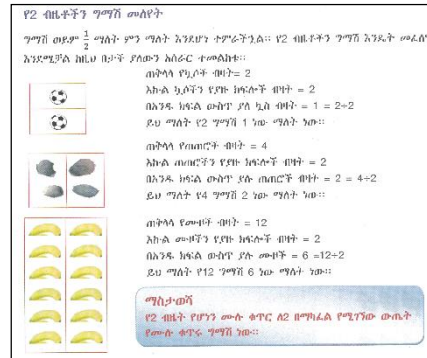 የ2 ብዜቶችን ግማሽ መለየት
ግማሽ ወይም 1/2 ማለት ምን ማለት እንደሆነ ተምራችኋል። የ2 ብዜቶችን ግማሽ እንዴት መፈለግ
እንደሚቻል ከዚህ በታች ያለውን አሰራር ተመልከቱ።
ጠቅላላ የኳሶች ብዛት= 2
እኩል ኳሶችን የያዙ ክፍሎች ብዛት = 2
በአንዱ ክፍል ውስጥ ያለ ኳስ ብዛት = 1 = 2÷2
ይህ ማለት የ2 ግማሽ 1 ነው ማለት ነው።
ጠቅላላ የጠጠሮች ብዛት = 4
እኩል ጠጠሮችን የያዙ ክፍሎች ብዛት = 2
በአንዱ ክፍል ውስጥ ያሉ ጠጠሮች ብዛት = 2 = 4÷2
ይህ ማለት የ4 ግማሽ 2 ነው ማለት ነው።
ጠቅላላ የሙዞች ብዛት = 12
እኩል ሙዞችን የያዙ ክፍሎች ብዛት = 2
በአንዱ ክፍል ውስጥ ያሉ ሙዞች = 6 =12÷2
ይህ ማለት የ12 ግማሽ 6 ነው ማለት ነው።
ማስታወሻ
የ2 ብዜት የሆነን ሙሉ ቁጥር ለ2 በማካፈል የሚገኘው ውጤት
የሙሉ ቁጥሩ ግማሽ ነው።